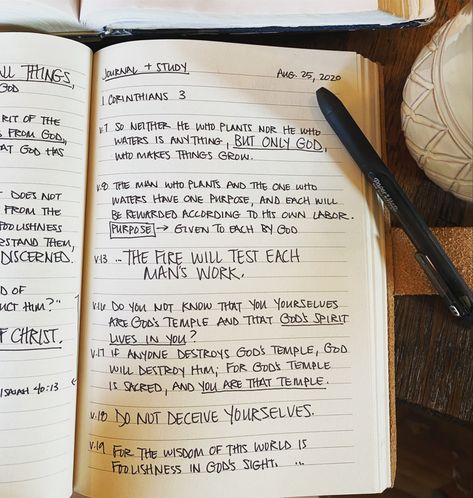 ALL THINGS,
GOD
RIT OF THE
S FROM GOD,
AT GOD HAS
DOES NOT
FROM THE
FOOLISHNESS
RSTAND THEM,
DISCERNED.
D OF
UCT HIM?"
OF CHRIST.
ISAIAH 40:13
JOURNAL + STUDY
AUG. 25, 2020
1 CORINTHIANS 3
V.7 SO NEITHER HE WHO PLANTS NOR HE WHO
WATERS IS ANYTHING, BUT ONLY GOD,
WHO MAKES THINGS GROW.
V.8 THE MAN WHO PLANTS AND THE ONE WHO
WATERS HAVE ONE PURPOSE, AND EACH WILL
BE REWARDED ACCORDING TO HIS OWN LABOR.
PURPOSE → GIVEN TO EACH BY GOD
V.13 ... THE FIRE WILL TEST EACH
MAN'S WORK.
V.16 DO YOU NOT KNOW THAT YOU YOURSELVES
ARE GOD'S TEMPLE AND THAT GOD'S SPIRIT
LIVES IN YOU?
V.17 IF ANYONE DESTROYS GOD'S TEMPLE, GOD
WILL DESTROY HIM; FOR GOD'S TEMPLE
IS SACRED, AND YOU ARE THAT TEMPLE.
V.18 DO NOT DECEIVE YOURSELVES.
V.19 FOR THE WISDOM OF THIS WORLD IS
FOOLISHNESS IN GOD'S SIGHT. ...